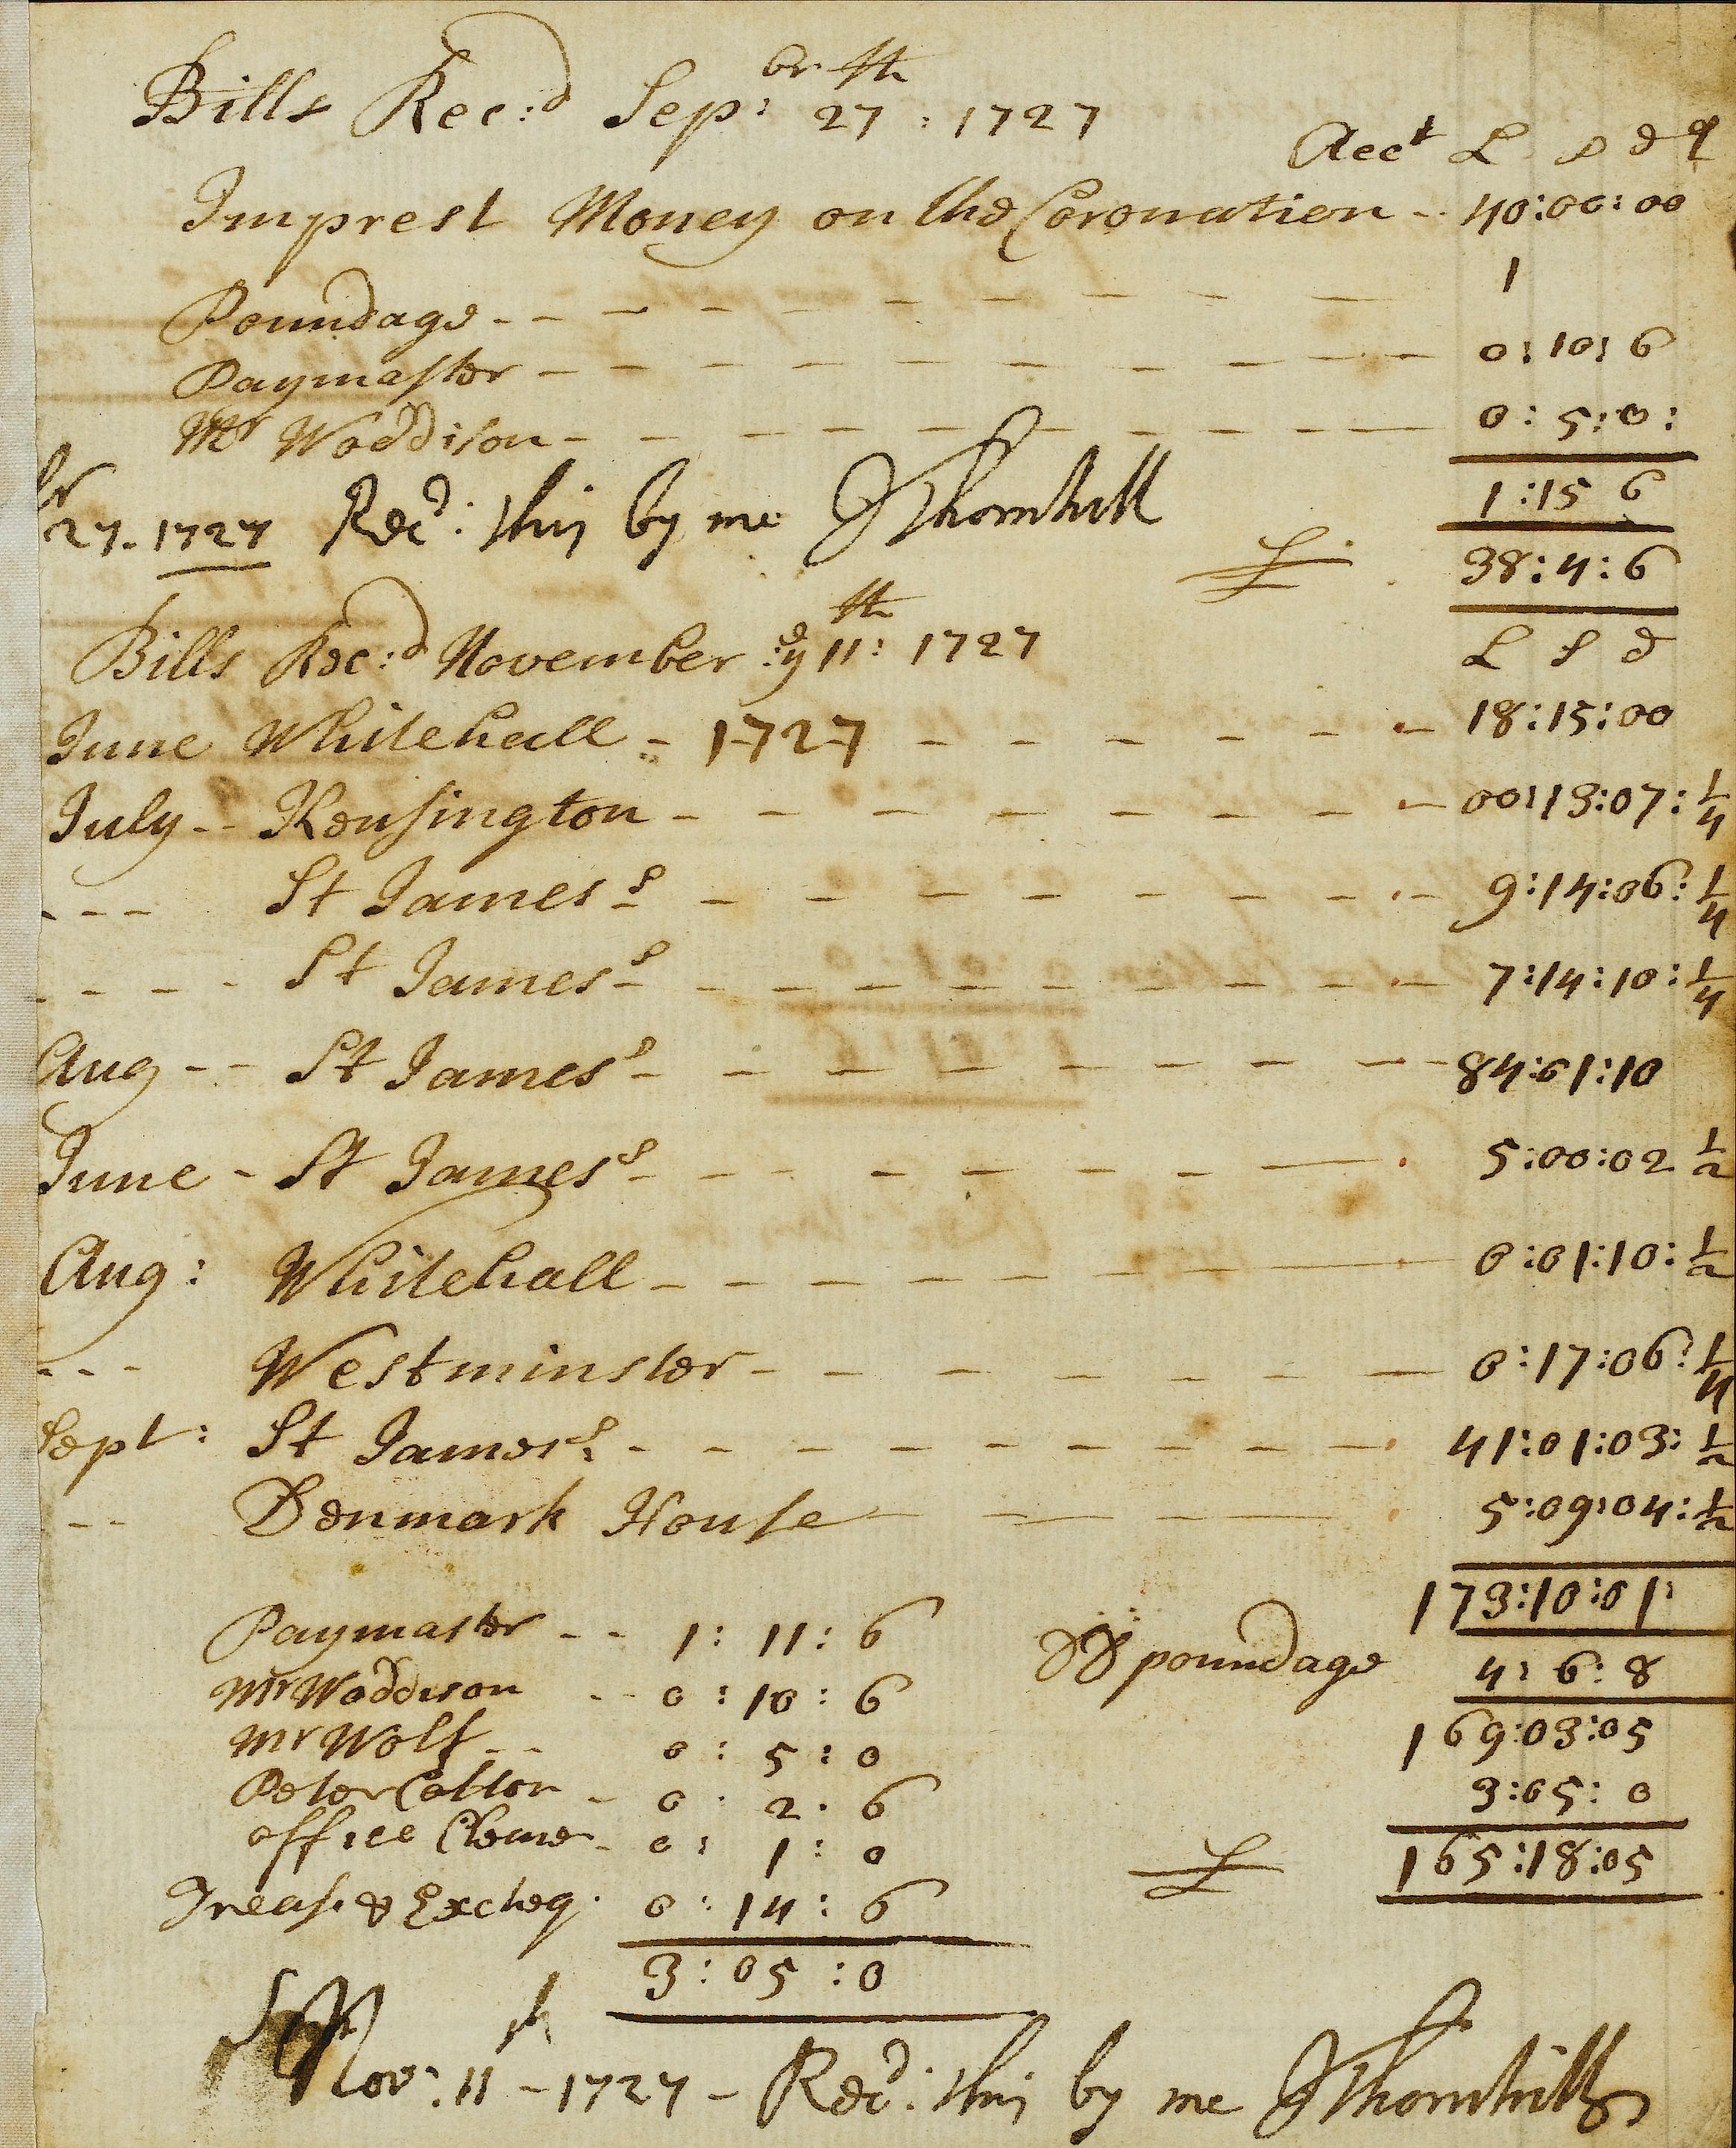 Bills Rec:d Sepr: br 27th : 1727
Acct L s d q
Imprest Money on the Coronation - - 40:00:00
Poundage - - - - - - - - - 1
Paymaster - - - - - - - - - 0:10:6
Mr Woddison - - - - - - - - - 0:5:0:
1:15 6
27. 1727 Recd: this by me JThornhill
£ 38:4:6
Bills Rec:d November ye 11th: 1727 L s d
June Whitehall - 1727 - - - - - - 18:15:00
July - - Kensington - - - - - - - - 00:13:07:1/4
- - - St James's - - - - - - - - 9:14:06:1/4
- - - - St James's - - - - - - - - 7:14:10:1/4
Aug - - St James's - - - - - - - - 84:01:10
June - St James's - - - - - - - 5:00:02 1/2
Aug: Whitehall - - - - - - - 0:01:10:1/2
- - - Westminster - - - - - - - 0:17:06:1/4
Sept: St James's - - - - - - - - - 41:01:03:1/2
- - Denmark House - - - - 5:09:04:1/2
173:10:01:
Paymaster - - 1: 11: 6
poundage 4: 6: 8
Mr Woddison - - 0: 10: 6
169:03:05
Mr Wolf - - 0: 5: 0
3:05: 0
Peter Cotton - 0: 2. 6
office - 0: 1: 0
£ 165:18:05
Treas: & Excheq: 0: 14: 6
3: 05: 0
Nov: 11th - 1727 - Recd: this by me JThornhill